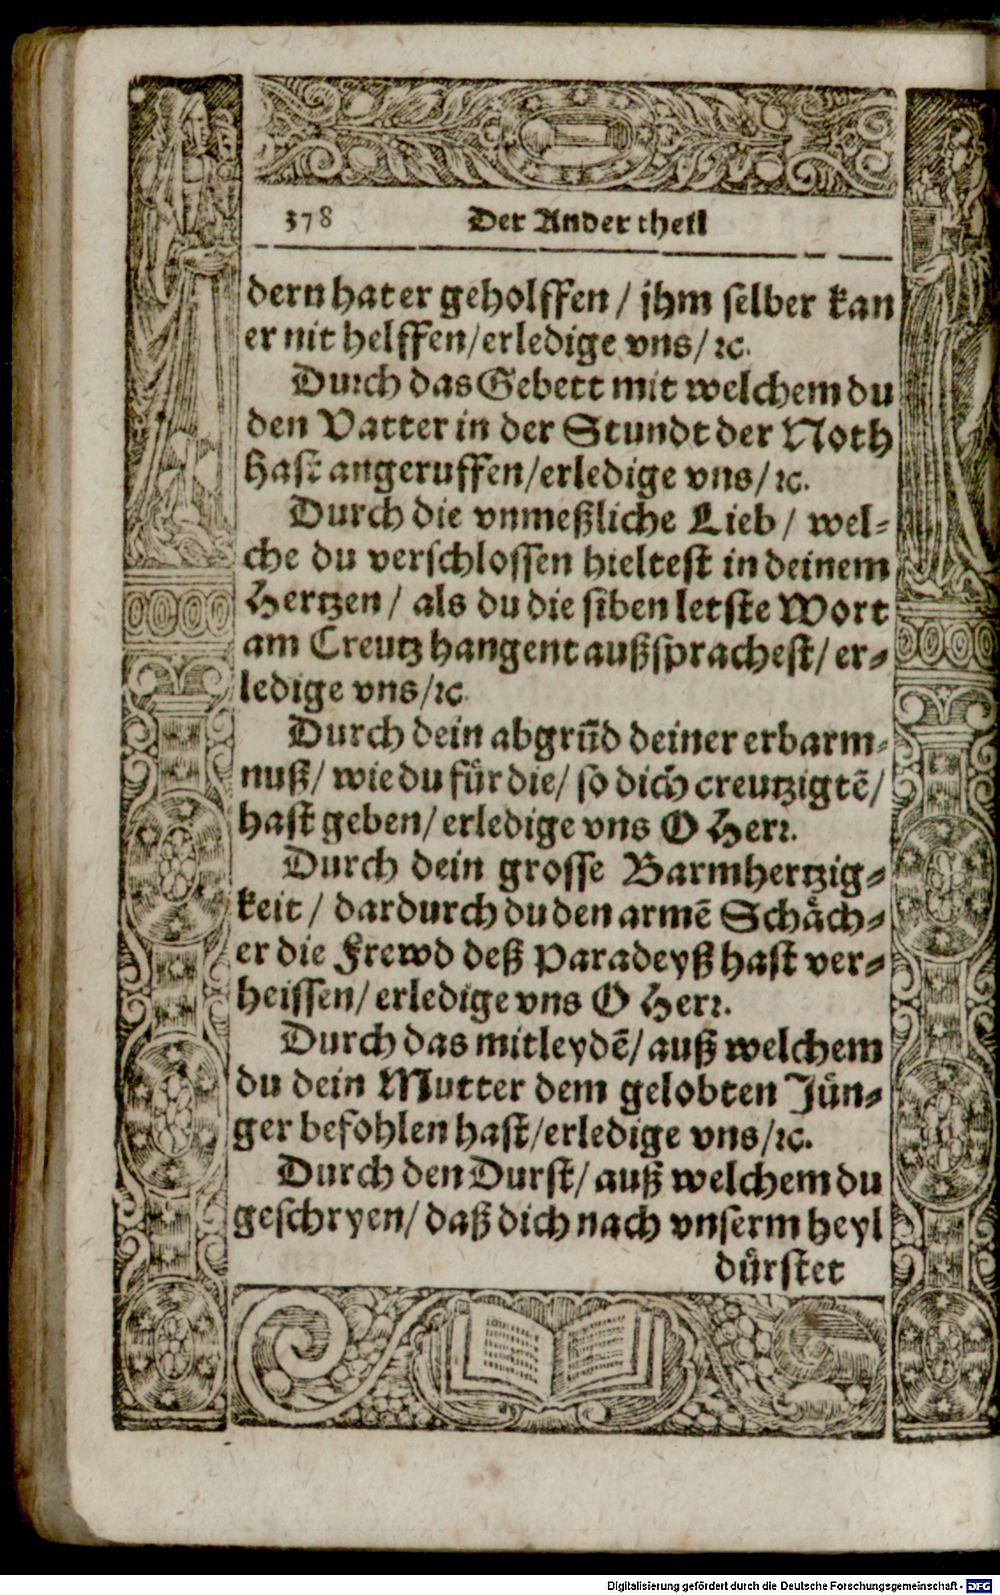 378 Der Ander theil
dern hat er geholffen / jhm selber kan
er nit helffen/erledige vns/ ꝛc.
Durch das Gebett mit welchem du
den Vatter in der Stundt der Noth
hast angeruffen/erledige vns/ ꝛc.
Durch die vnmeßliche Lieb / wel⸗
che du verschlossen hieltest in deinem
Hertzen / als du die siben letste Wort
am Creutz hangent außsprachest/ er⸗
ledige vns/ꝛc.
Durch dein abgrũd deiner erbarm⸗
nuß/ wie du fuͤr die/ so dich creutzigtẽ/
hast geben/ erledige vns O Herꝛ.
Durch dein grosse Barmhertzig⸗
keit / dardurch du den armẽ Schaͤch⸗
er die Frewd deß Paradeyß hast ver⸗
heissen/ erledige vns O Herꝛ.
Durch das mitleydẽ/ auß welchem
du dein Mutter dem gelobten Juͤn⸗
ger befohlen hast/erledige vns/ꝛc.
Durch den Durst/ auß welchem du
geschryen/ daß dich nach vnserm heyl
duͤrstet
Digitalisierung gefördert durch die Deutsche Forschungsgemeinschaft - DFG